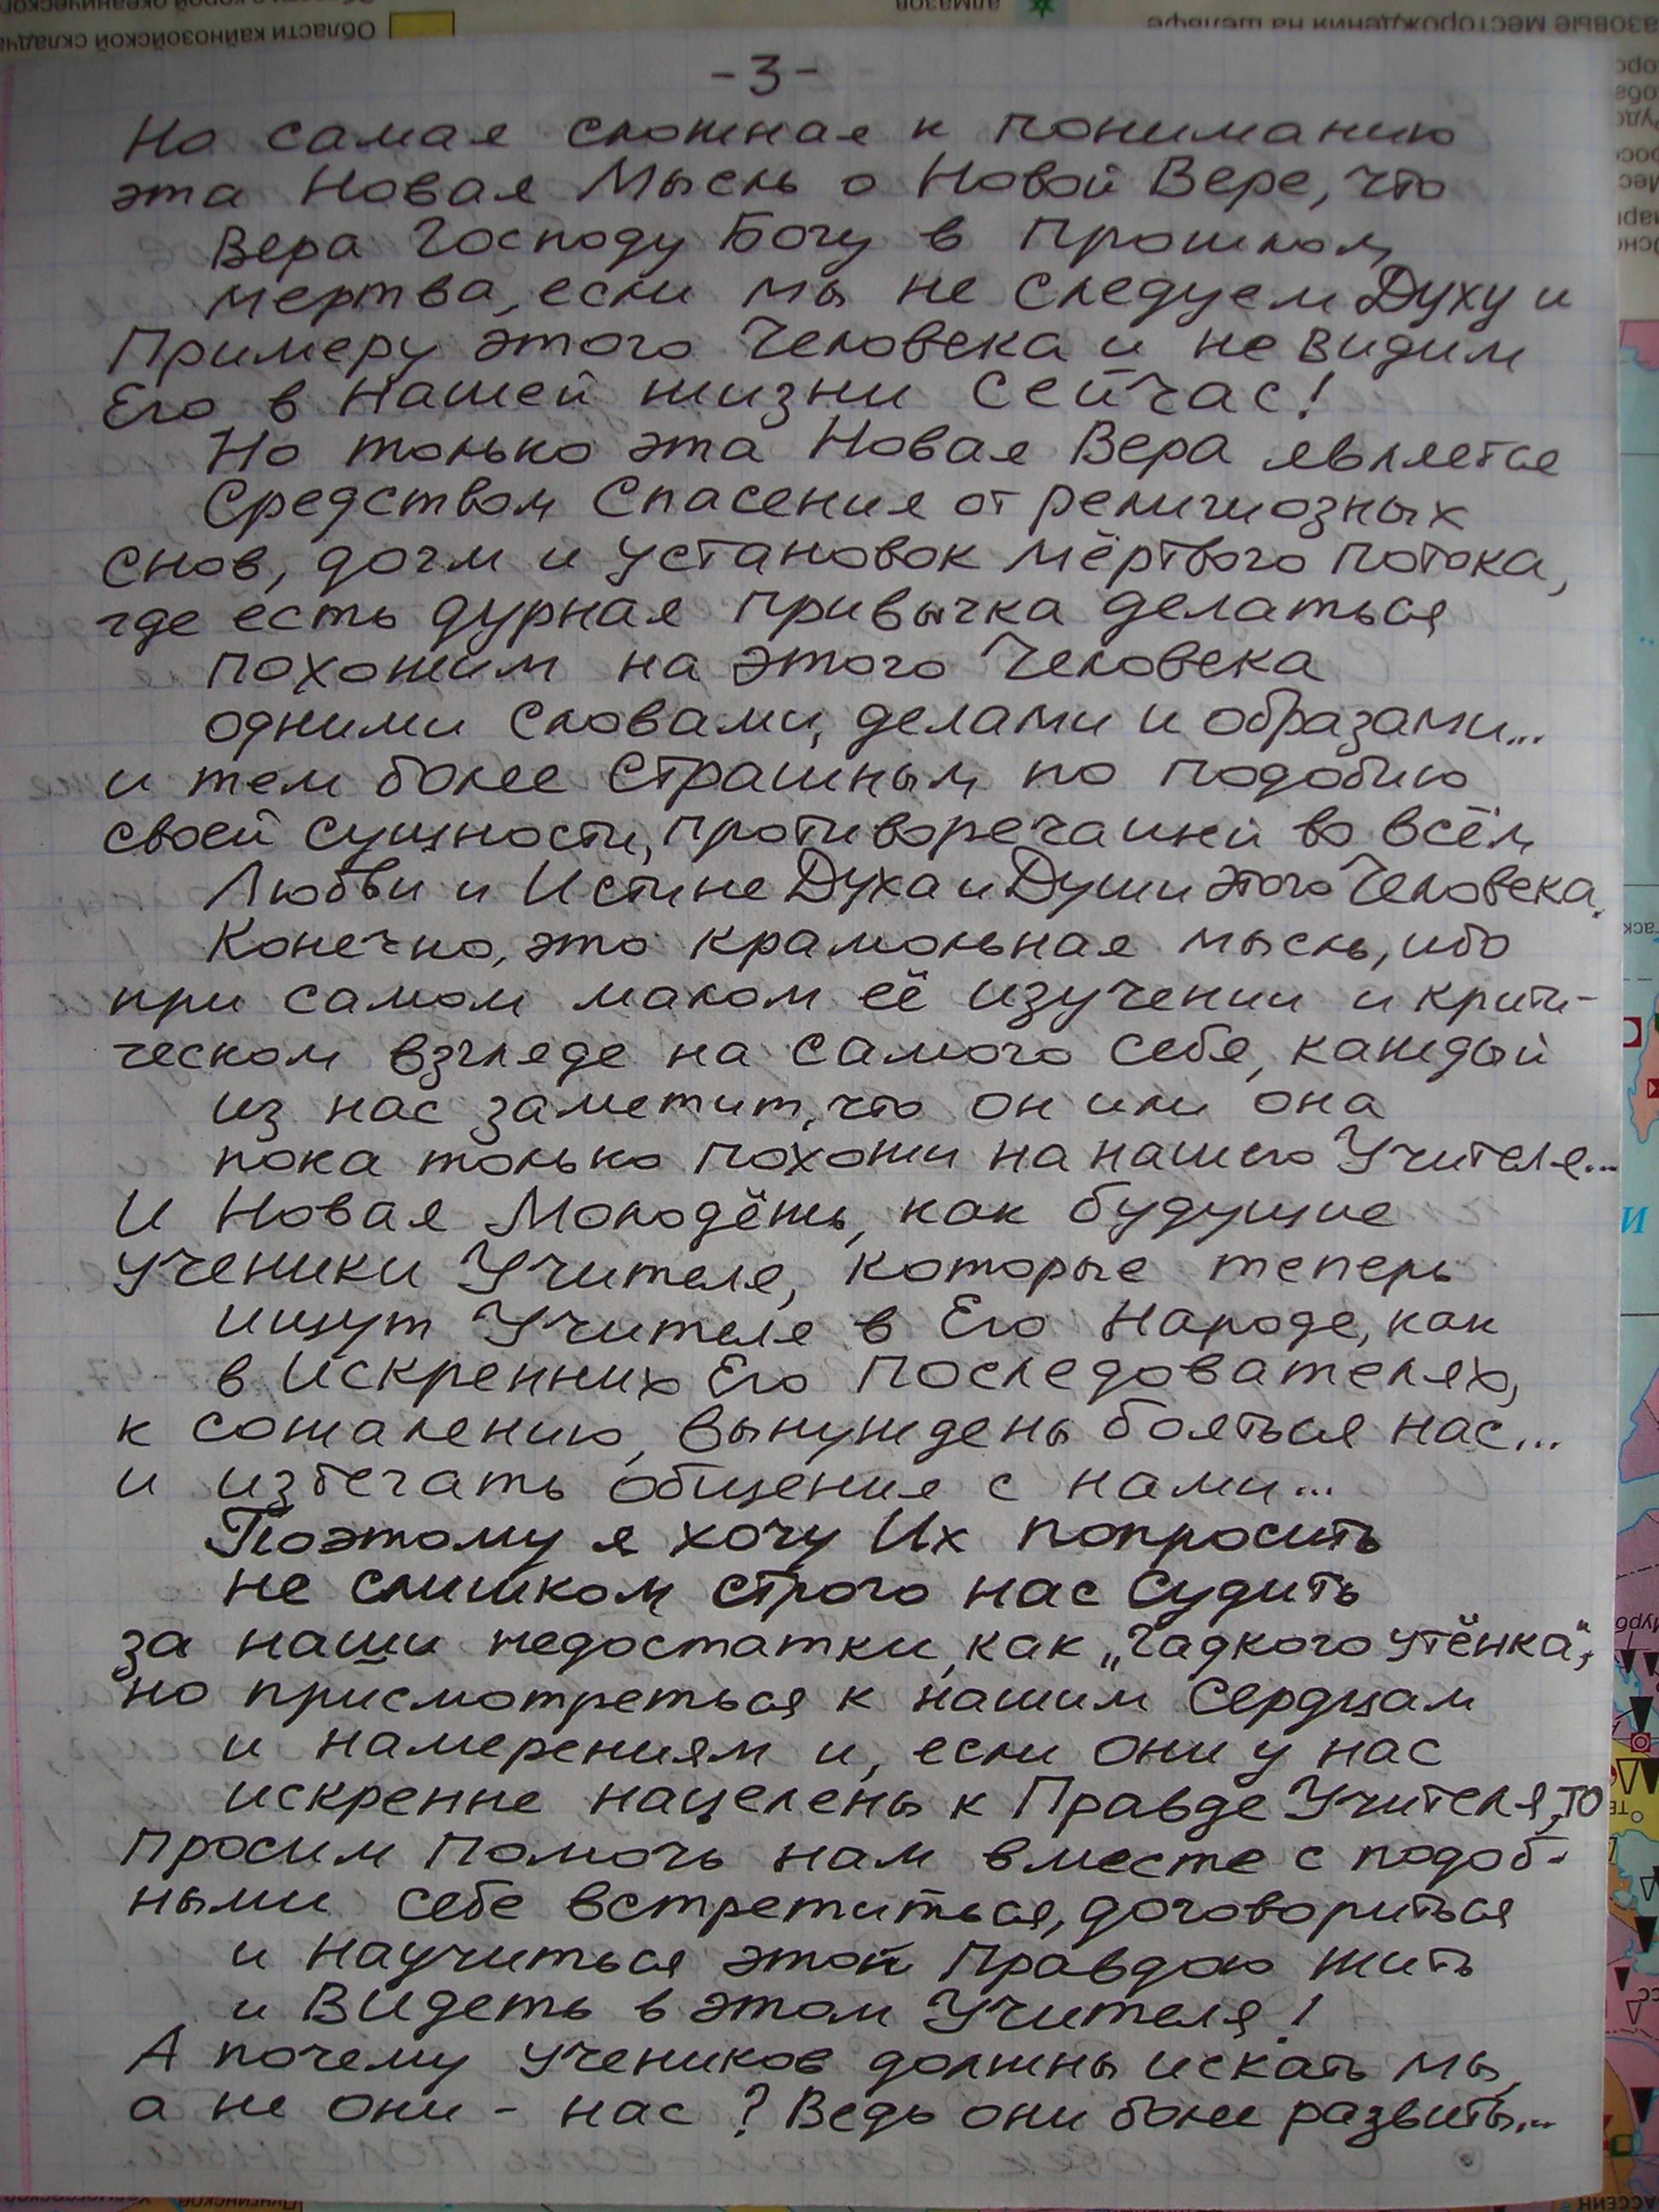 Области кайнозойской складча
алмазов
азовые месторождения на шельфе
-3-
Но самая сложная к пониманию
эта Новая Мысль о Новой Вере, что
Вера Господу Богу в Прошлом
мертва, если мы не следуем Духу и
Примеру этого Человека и не видим
Его в нашей жизни сейчас!
Но только эта Новая Вера является
Средством Спасения от религиозных
снов, догм и установок мёртвого потока,
где есть дурная привычка делаться
похожим на этого Человека
одними словами, делами и образами...
и тем более страшным по подобию
своей сущности, противоречащей во всём
Любви и Истине Духа и Души этого Человека.
Конечно, это крамольная мысль, ибо
при самом малом её изучении и крити-
ческом взгляде на самого себя, каждый
из нас заметит, что он или она
пока только похожи на нашего Учителя...
И Новая Молодёжь, как будущие
ученики Учителя, которые теперь
ищут Учителя в Его Народе, как
в Искренних Его Последователях,
к сожалению, вынуждены бояться нас...
и избегать общения с нами...
Поэтому я хочу Их попросить
не слишком строго нас судить
за наши недостатки, как „гадкого утёнка“,
но присмотреться к нашим Сердцам
и намерениям и, если они у нас
искренне нацелены к Правде Учителя, то
просим помочь нам вместе с подоб-
ными себе встретиться, договориться
и научиться этой Правдою жить
и Видеть в этом Учителя!
А почему учеников должны искать мы,
а не они - нас? Ведь они более развиты...